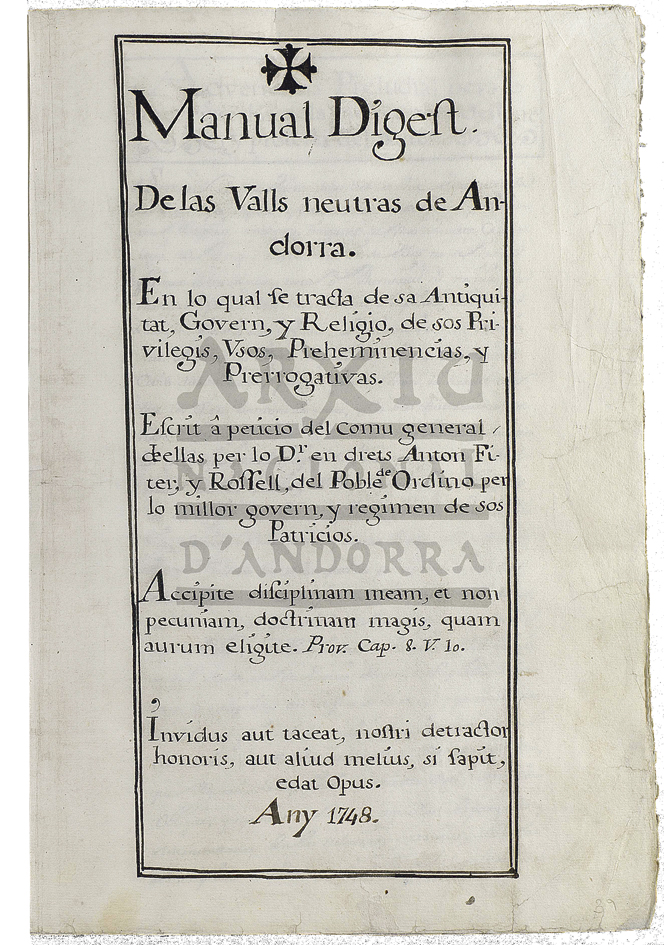 Manual Digest.
De las Valls neutras de An-
dorra.
En lo qual se tracta de sa Antiqui-
tat, Govern, y Religio, de sos Pri-
vilegis, Vsos, Preheminencias, y
Prerrogativas.
Escrit â peticio del Comu general
dellas per lo D.r en drets Anton Fi-
ter, y Rossell, del Poble de Ordino per
lo millor govern, y regimen de sos
Patricios.
Accipite disciplinam meam, et non
pecuniam, doctrinam magis, quam
aurum eligite. Prov. Cap. 8. V. 10.
Invidus aut taceat, nostri detractor
honoris, aut aliud melius, si sapit,
edat Opus.
Any 1748.
ARXIU
NACIONAL
D'ANDORRA